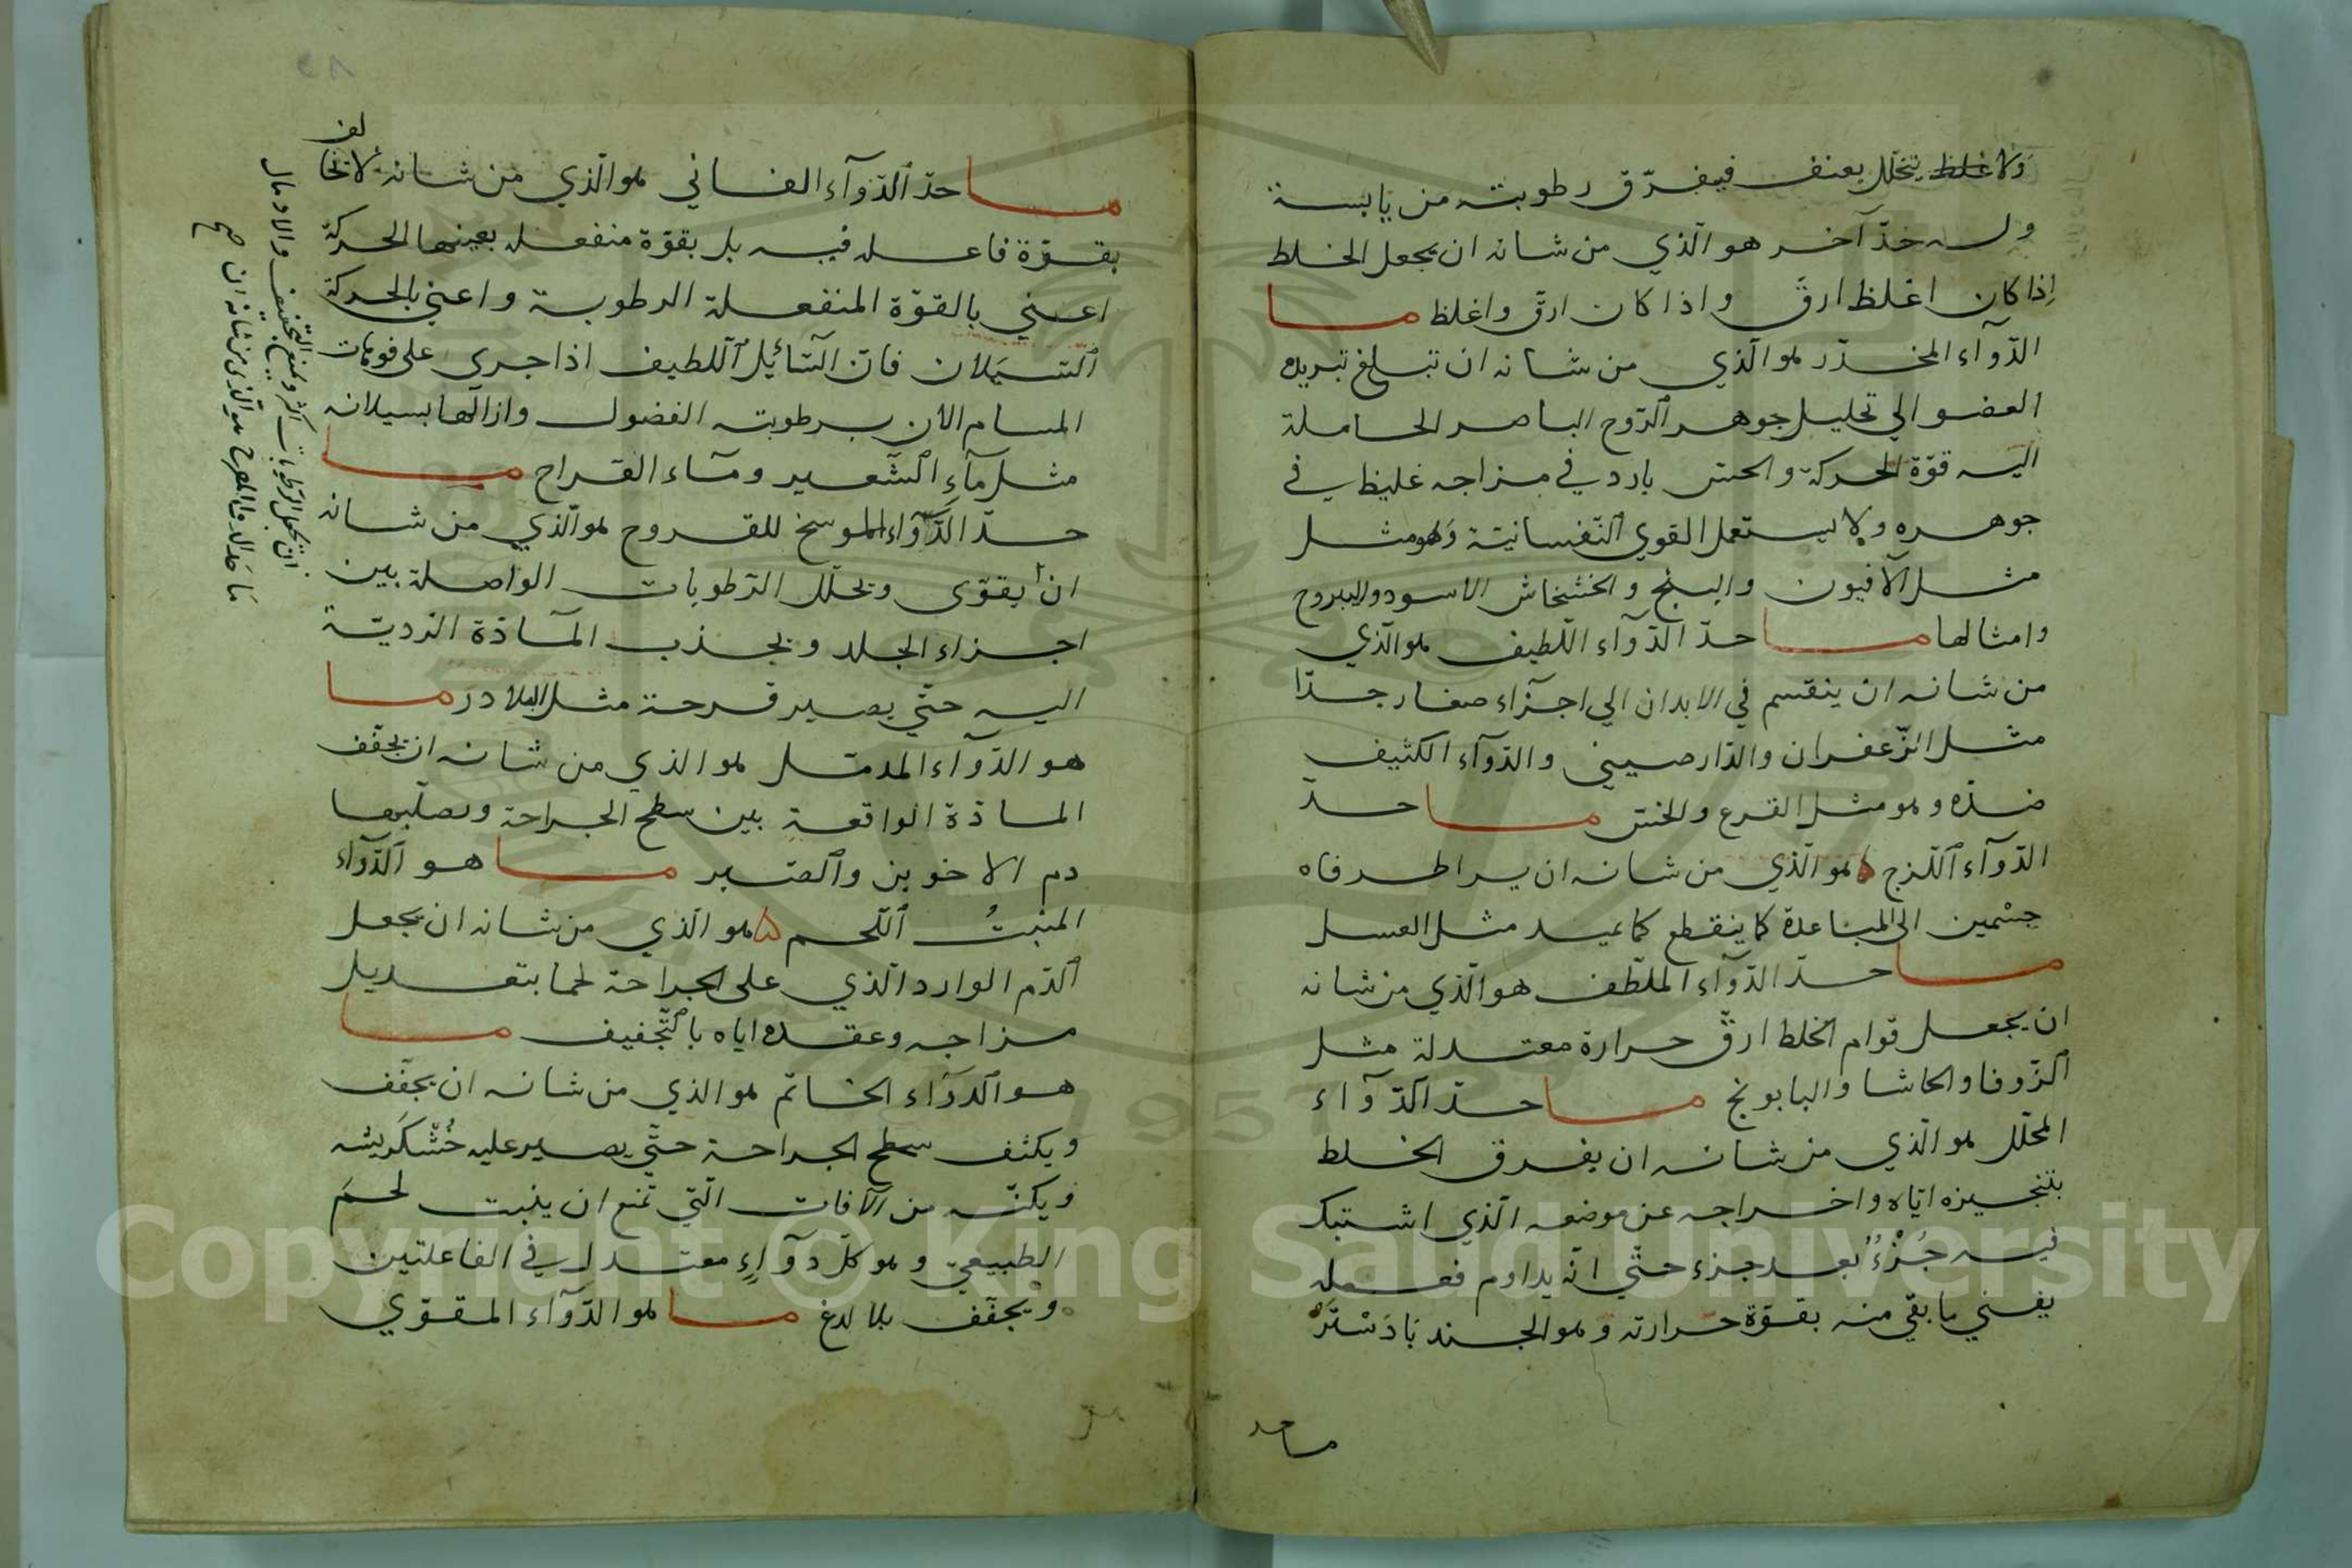 ولا غلظ يتخلل بعنف فيفرّق رطوبته من يابسة
وله حدّ آخر هو الّذي من شانه ان يجعل الخلط
إذا كان اغلظ ارقّ واذا كان ارقّ واغلظ ما
الدّوآء المخدّر هو الّذي من شانه ان تبلغ تبريده
العضو الي تحليل جوهر ٱلرّوح الباصر الحاملة
اليه قوّة الحركة والحسّ بارد في مزاجه غليظ في
جوهره ولا يستعمل القوي ٱلنّفسانيّة وهو مثل
مثل الآفيون والبنج والخشخاش الاسود واليبروح
وامثالها ما حدّ الدّوآء اللّطيف هو الّذي
من شانه ان ينقسم في الابدان الي اجزآء صغار جدّا
مثل الزّعفران والدّارصيني والدّوآء الكثيف
ضدّه وهو مثل القرع والخسّ ما حدّ
الدّوآء ٱللّزج ه هو الّذي من شانه ان يبراطرفاه
جسْمين الى المباعدة كاينقطع كما عيد مثل العسل
ما حدّ الدّوآء الملطّف هو الّذي من شانه
ان يجعل قوام الخلط ارقّ حرارة معتدلة مثل
ٱلزّوفا والحاشا والبابونج ما حدّ ٱلدّوآء
المحلّل هو الّذي من شانه ان يفرق الخلط
بتنجيزه ايّاه واخراجه عن موضعه الّذي اشتبك
فيه جُزْءُ بعد جزء حتّي انّه يداوم فعله
يفني ما بقي منه بقوّة حرارته وهو الجند بَادَسْتَرْ
ما حد
ما حدّ ٱلدّوآء الغساني هو الّذي من شانه لاتخالف
بقوّة فاعله فيه بل بقوّة منفعله بعينها الحركة
اعني بالقوّة المنفعلة الرطوبة واعني بالحركة
ٱلسّيَلان فانّ السّائِل ٱللطيف اذا جري على فوهات
المسام الان برطوبته الفضول وازالها بسيلانه
مثل مآء ٱلشّعير ومآء القراح ما
حدّ الدَّوآء الموسخ للقروح هو الّذي من شانه
ان يقوّى ويحلّل الرّطوبات الواصلة بين
اجزاء الجلد ويجذب المآدّة الرديّة
اليه حتّي يصير قرحة مثل البلادر ما
هو الدّوآء المدمّل هو الذي من شانه ان يجفّف
المادّة الواقعة بين سطح الجراحة ويصلّبها
دم الاخوين وٱلصّبر ما هو ٱلدّوآء
المنبتُ ٱللّحم ه هو الّذي من شانه ان يجعل
ٱلدّم الوارد الّذي على الجراحة لحما بتعديل
مزاجه وعقده اياه باٱلتّجفيف ما
هو ٱلدوَآء الخاتم هو الذي من شانه ان يجفّف
ويكثف سطح الجراحة حتّي يصير عليه خُشْكَريشه
ويكنّه من الآفات الّتي تمنع ان ينبت لحمَ
الطبيعيّ وهو كلّ دوآءٍ معتدل في الفاعلتين
ويجفّف بلا لدغ ما هو الدّوآء المقوّي
ان تجعل الرّطوبات اكثر ويمنع التجفيف والاندمال
ما حد الدواء المقرح هو الّذي من شانه ان صح
Copyright © King Saud University
1957